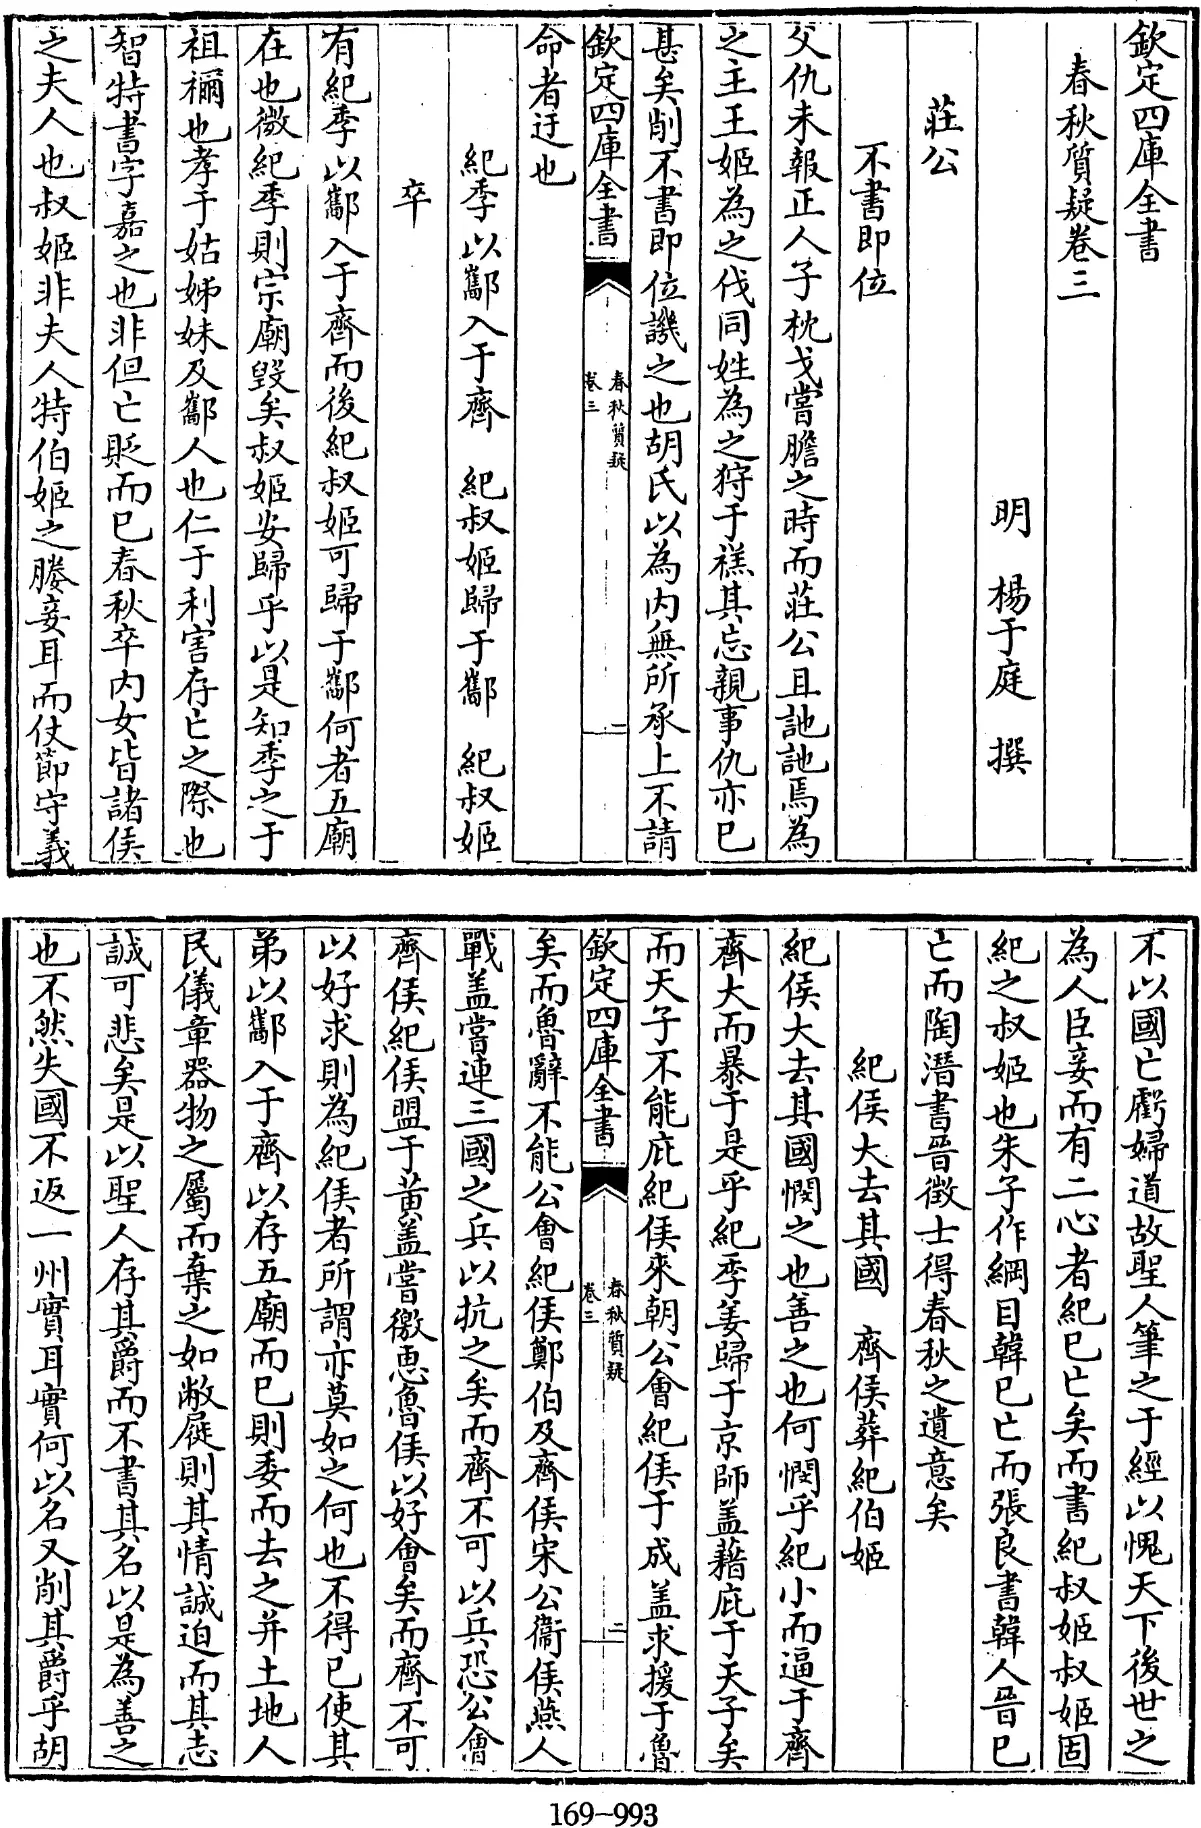 欽定四庫全書
春秋質疑卷三
明　楊于庭　撰
莊公
不書即位
父仇未報正人子枕戈嘗膽之時而莊公且訑訑焉為
之主王姬為之伐同姓為之狩于禚其忘親事仇亦已
甚矣削不書即位譏之也胡氏以為内無所承上不請
欽定四庫全書
春秋質疑
卷三
一
命者迂也
紀季以酅入于齊　紀叔姬歸于酅　紀叔姬
卒
有紀季以酅入于齊而後紀叔姬可歸于酅何者五廟
在也微紀季則宗廟毀矣叔姬安歸乎以是知季之于
祖禰也孝于姑姊妹及酅人也仁于利害存亡之際也
智特書字嘉之也非但亡貶而已春秋卒内女皆諸侯
之夫人也叔姬非夫人特伯姬之媵妾耳而仗節守義
不以國亡虧婦道故聖人筆之于經以愧天下後世之
為人臣妾而有二心者紀已亡矣而書紀叔姬叔姬固
紀之叔姬也朱子作綱目韓已亡而張良書韓人晉已
亡而陶潛書晉徵士得春秋之遺意矣
紀侯大去其國　齊侯葬紀伯姬
紀侯大去其國憫之也善之也何憫乎紀小而逼于齊
齊大而暴于是乎紀季姜歸于京師盖藉庇于天子矣
而天子不能庇紀侯來朝公會紀侯于成盖求援于魯
欽定四庫全書
春秋質疑
卷三
二
矣而魯辭不能公會紀侯鄭伯及齊侯宋公衞侯燕人
戰盖嘗連三國之兵以抗之矣而齊不可以兵恐公會
齊侯紀侯盟于黄盖嘗徼惠魯侯以好會矣而齊不可
以好求則為紀侯者所謂亦莫如之何也不得已使其
弟以酅入于齊以存五廟而已則委而去之并土地人
民儀章器物之屬而棄之如敝屣則其情誠迫而其志
誠可悲矣是以聖人存其爵而不書其名以是為善之
也不然失國不返一州實耳實何以名又削其爵乎胡
169-993